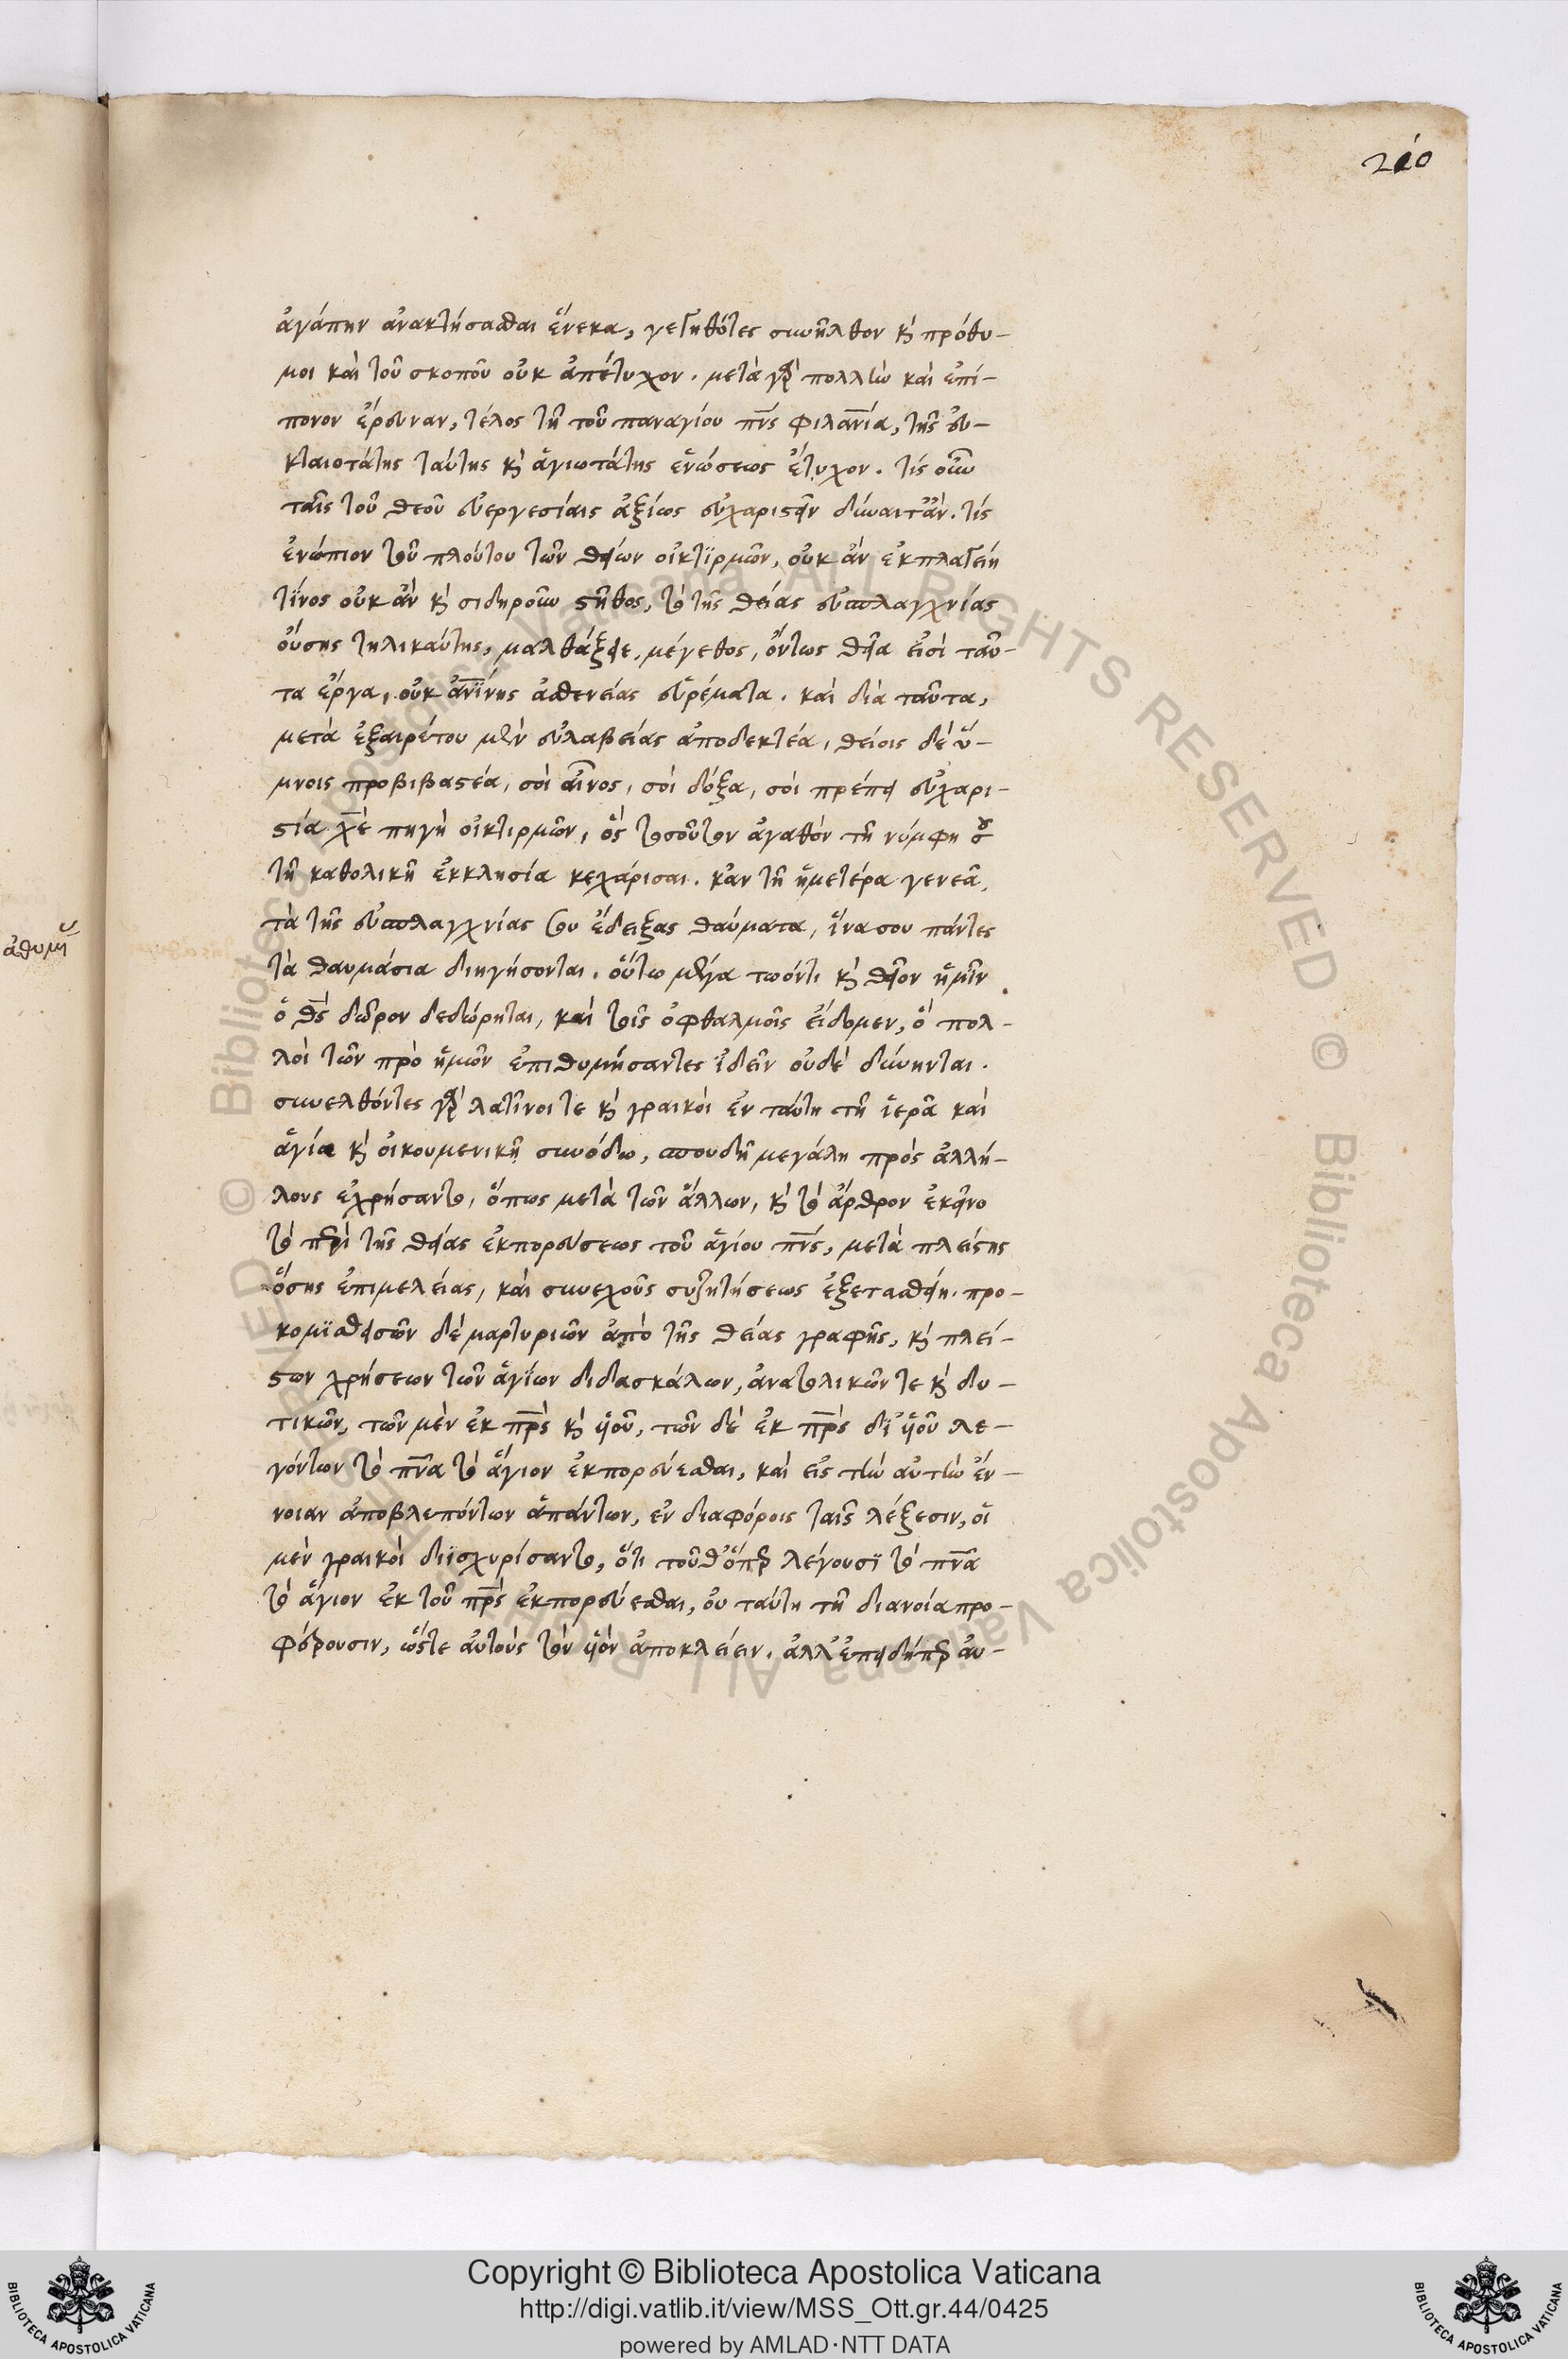 210
ἀγάπην ἀνακτήσασθαι ἕνεκα, γεγηθότες συνῆλθον κ πρόθυ-
μοι καὶ τοῦ σκοποῦ οὐκ ἀπέτυχον. μετὰ γὰρ πολλὴν καὶ ἐπί-
πονον ἔρευναν, τέλος τῆ τοῦ παναγίου πνς φιλανία, τῆς εὐ-
κταιοτάτης ταύτης κ ἁγιωτάτης ἑνώσεως ἔτυχον. τίς οὖν
ταῖς τοῦ θεοῦ εὐεργεσίαις ἀξίως εὐχαριστεῖν δύναιτ' ἄν. τίς
ἐνώπιον τοῦ πλούτου τῶν θείων οἰκτϊρμῶν, οὐκ ἂν ἐκπλαγείη
τίνος οὐκ ἂν κ σιδηροῦν στῆθος, τὸ τῆς θείας εὐσπλαγχνίας
οὔσης τηλικαύτης, μαλθάξειε, μέγεθος, ὄντως θεῖα εἰσὶ ταῦ-
τα ἔργα, οὐκ ἀνϊνης ἀσθενείας εὑρέματα. καὶ διὰ ταῦτα,
μετὰ ἐξαιρέτου μὲν εὐλαβείας ἀποδεκτέα, θείοις δὲ ὕ-
μνοις προβιβαστέα, σοὶ αἶνος, σοὶ δόξα, σοὶ πρέπει εὐχαρι-
στία χε πηγὴ οἰκτιρμῶν, ὃς τοσοῦτον ἀγαθὸν τῆ νύμφη σου
τῆ καθολικῆ ἐκκλησία κεχάρισαι. κἂν τῆ ἡμετέρα γενεᾶ,
τὰ τῆς εὐσπλαγχνίας σου ἔδειξας θαύματα, ἵνα σου πάντες
τὰ θαυμάσια διηγήσονται. οὕτω μέγα τωόντι κ θεῖον ἡμῖν
ὁ θς δῶρον δεδώρηται, καὶ τοῖς ὀφθαλμοῖς εἴδομεν, ὃ πολ-
λοὶ τῶν πρὸ ἡμῶν ἐπιθυμήσαντες ἰδεῖν οὐδὲ δύνηνται.
συνελθόντες γὰρ λατῖνοι τε κ γραικοὶ ἐν ταύτη τῆ ἱερᾶ καὶ
ἁγία κ οἰκουμενικῆ συνόδω, σπουδῆ μεγάλη πρὸς ἀλλή-
λους ἐχρήσαντο, ὅπως μετὰ τῶν ἄλλων, κ τὸ ἄρθρον ἐκεῖνο
τὸ περὶ τῆς θείας ἐκπορεύσεως τοῦ ἁγίου πνς, μετὰ πλείστης
ὅσης ἐπιμελείας, καὶ συνεχοῦς συζητήσεως ἐξετασθείη. προ-
κομϊσθεισῶν δὲ μαρτυριῶν ἀπὸ τῆς θείας γραφῆς, κ πλεί-
στων χρήσεων τῶν ἁγίων διδασκάλων, ἀνατολικῶν τε κ δυ-
τικῶν, τῶν μὲν ἐκ πρς κ υἱοῦ, τῶν δὲ ἐκ πρς δι' υἱοῦ λε-
γόντων τὸ πνα τὸ ἅγιον ἐκπορεύεσθαι, καὶ εἰς τὴν αὐτὴν ἔν-
νοιαν ἀποβλεπόντων ἁπάντων, ἐν διαφόροις ταῖς λέξεσιν, οἱ
μὲν γραικοὶ διϊσχυρίσαντο, ὅτι τοῦθ' ὅπερ λέγουσϊ τὸ πνα
τὸ ἅγιον ἐκ τοῦ πρς ἐκπορεύεσθαι, οὐ ταύτη τῆ διανοία προ-
φέρουσιν, ὥστε αὐτοὺς τὸν υἱὸν ἀποκλείειν. ἀλλ' ἐπειδήπερ αὐ-
Copyright © Biblioteca Apostolica Vaticana
http://digi.vatlib.it/view/MSS_Ott.gr.44/0425
powered by AMLAD·NTT DATA
BIBLIOTECA APOSTOLICA VATICANA
BIBLIOTECA APOSTOLICA VATICANA